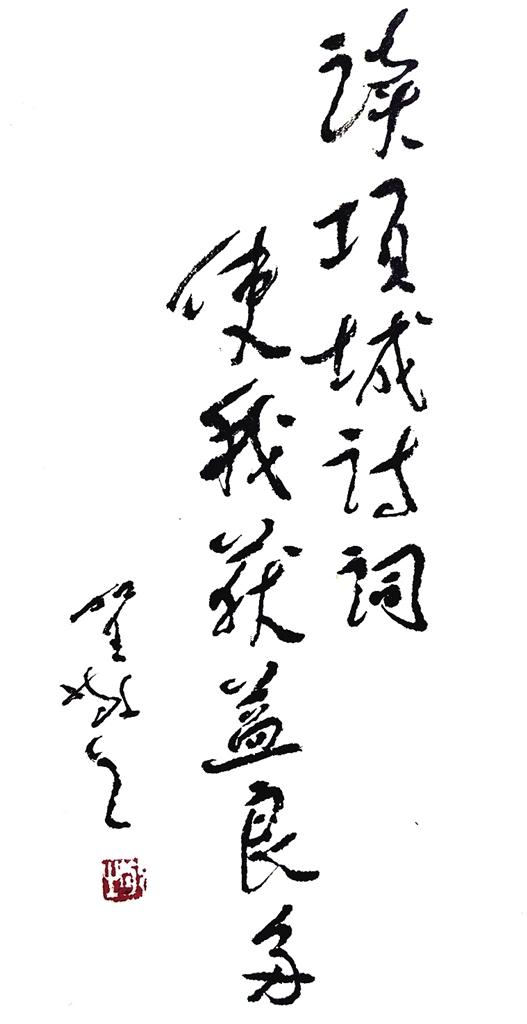 读项城诗词
使我获益良多